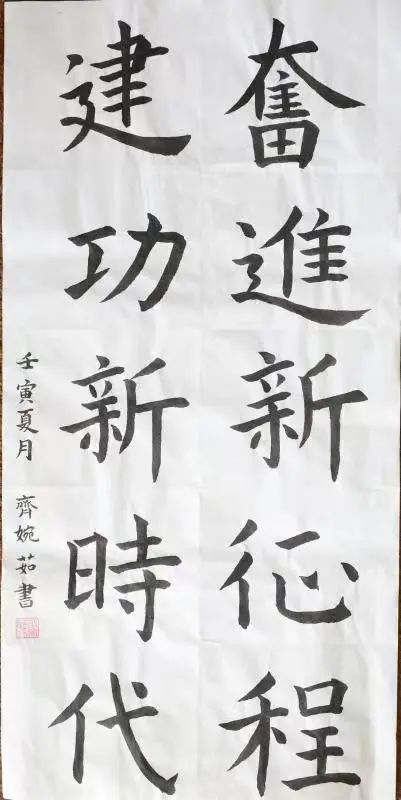 奮進新征程
建功新時代
壬寅夏月 齊婉茹書